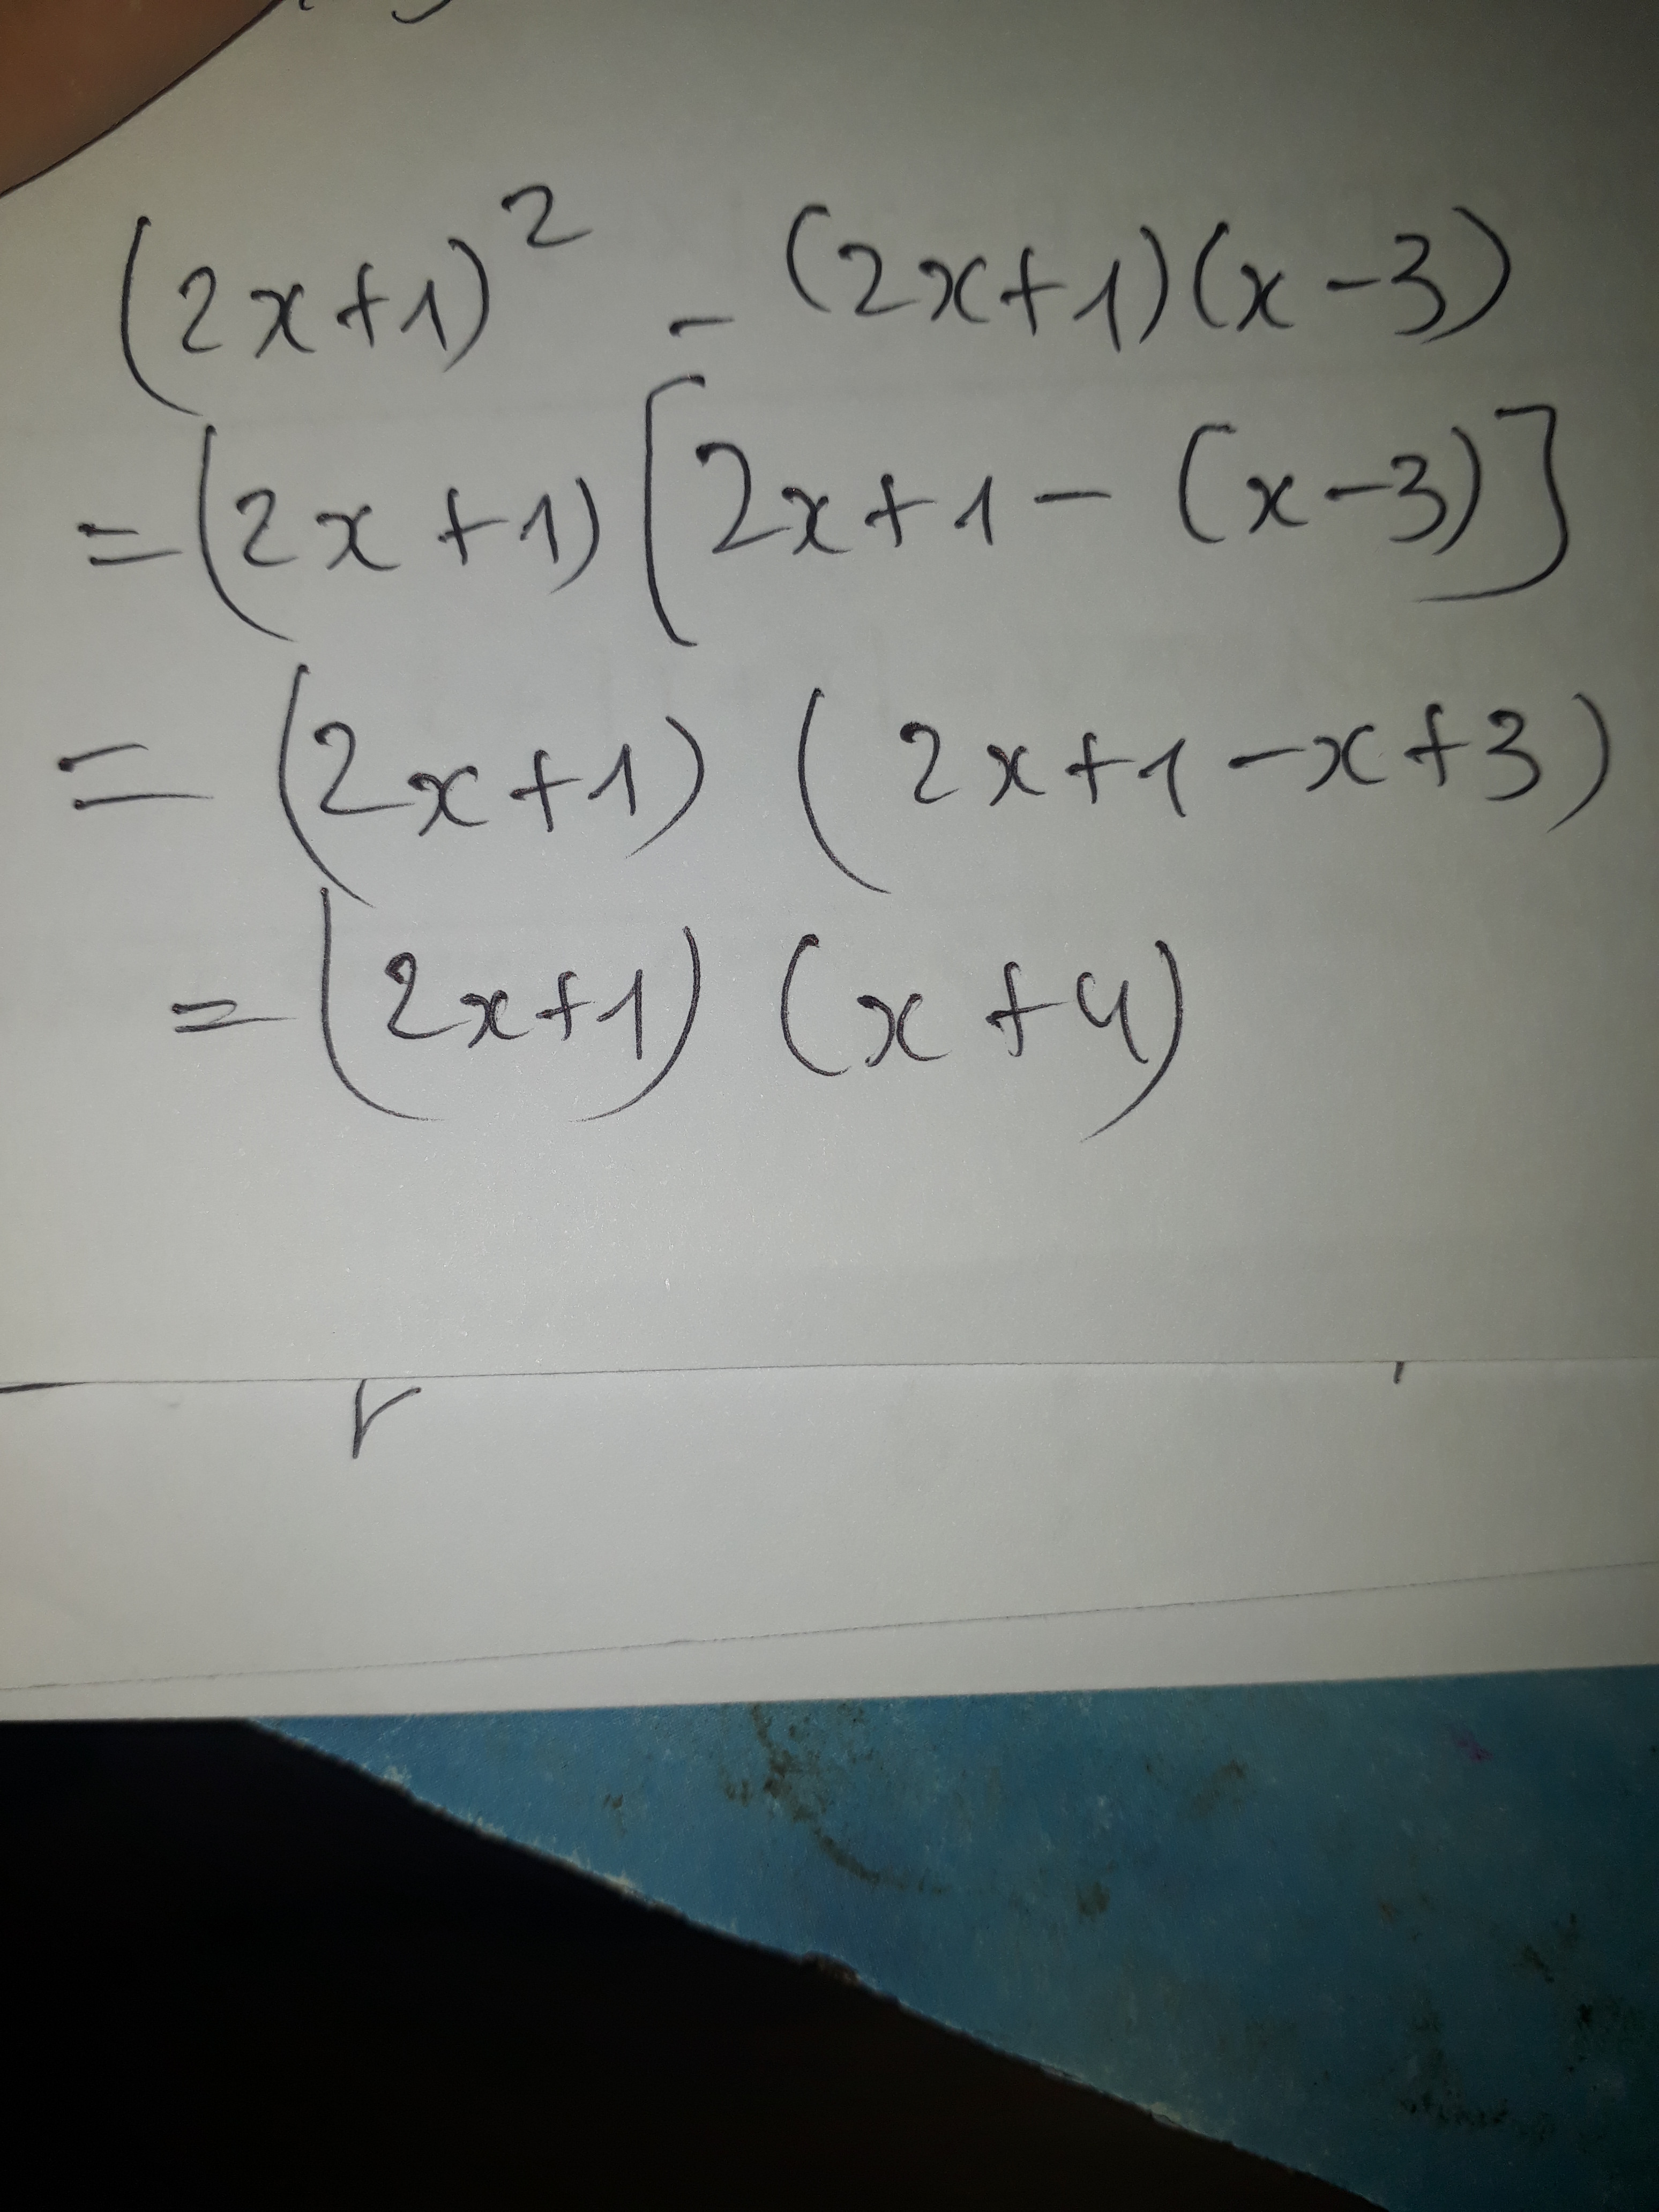 (2x+1)² - (2x+1)(x-3)
=(2x+1)[2x+1-(x-3)]
= (2x+1) (2x+1-x+3)
=(2x+1) (x+4)